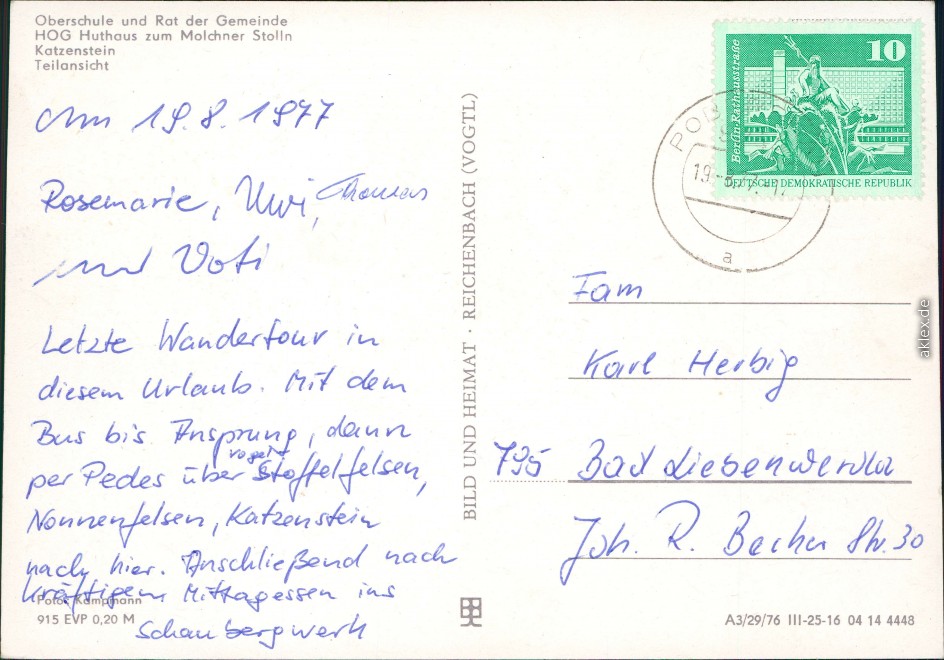 Oberschule und Rat der Gemeinde
HOG Huthaus zum Molchner Stolln
Katzenstein
Teilansicht
Am 19.8.1977
Rosemarie, Uwi, Thomas
und Voti
Letzte Wandertour in
diesem Urlaub. Mit dem
Bus bis Ansprung, dann
per Pedes über Stoffelfelsen,
Nonnenfelsen, Katzenstein
nach hier. Anschließend nach
kräftigem Mittagessen ins
Schaubergwerk
Foto: Kampmann
915 EVP 0,20 M
BILD UND HEIMAT · REICHENBACH (VOGTL)
Berlin-Rathausstraße
10
DEUTSCHE DEMOKRATISCHE REPUBLIK
a
Fam
Karl Herbig
795 Bad Liebenwerda
Joh. R. Becher Str. 30
A3/29/76 III-25-16 04 14 4448
aklex.de